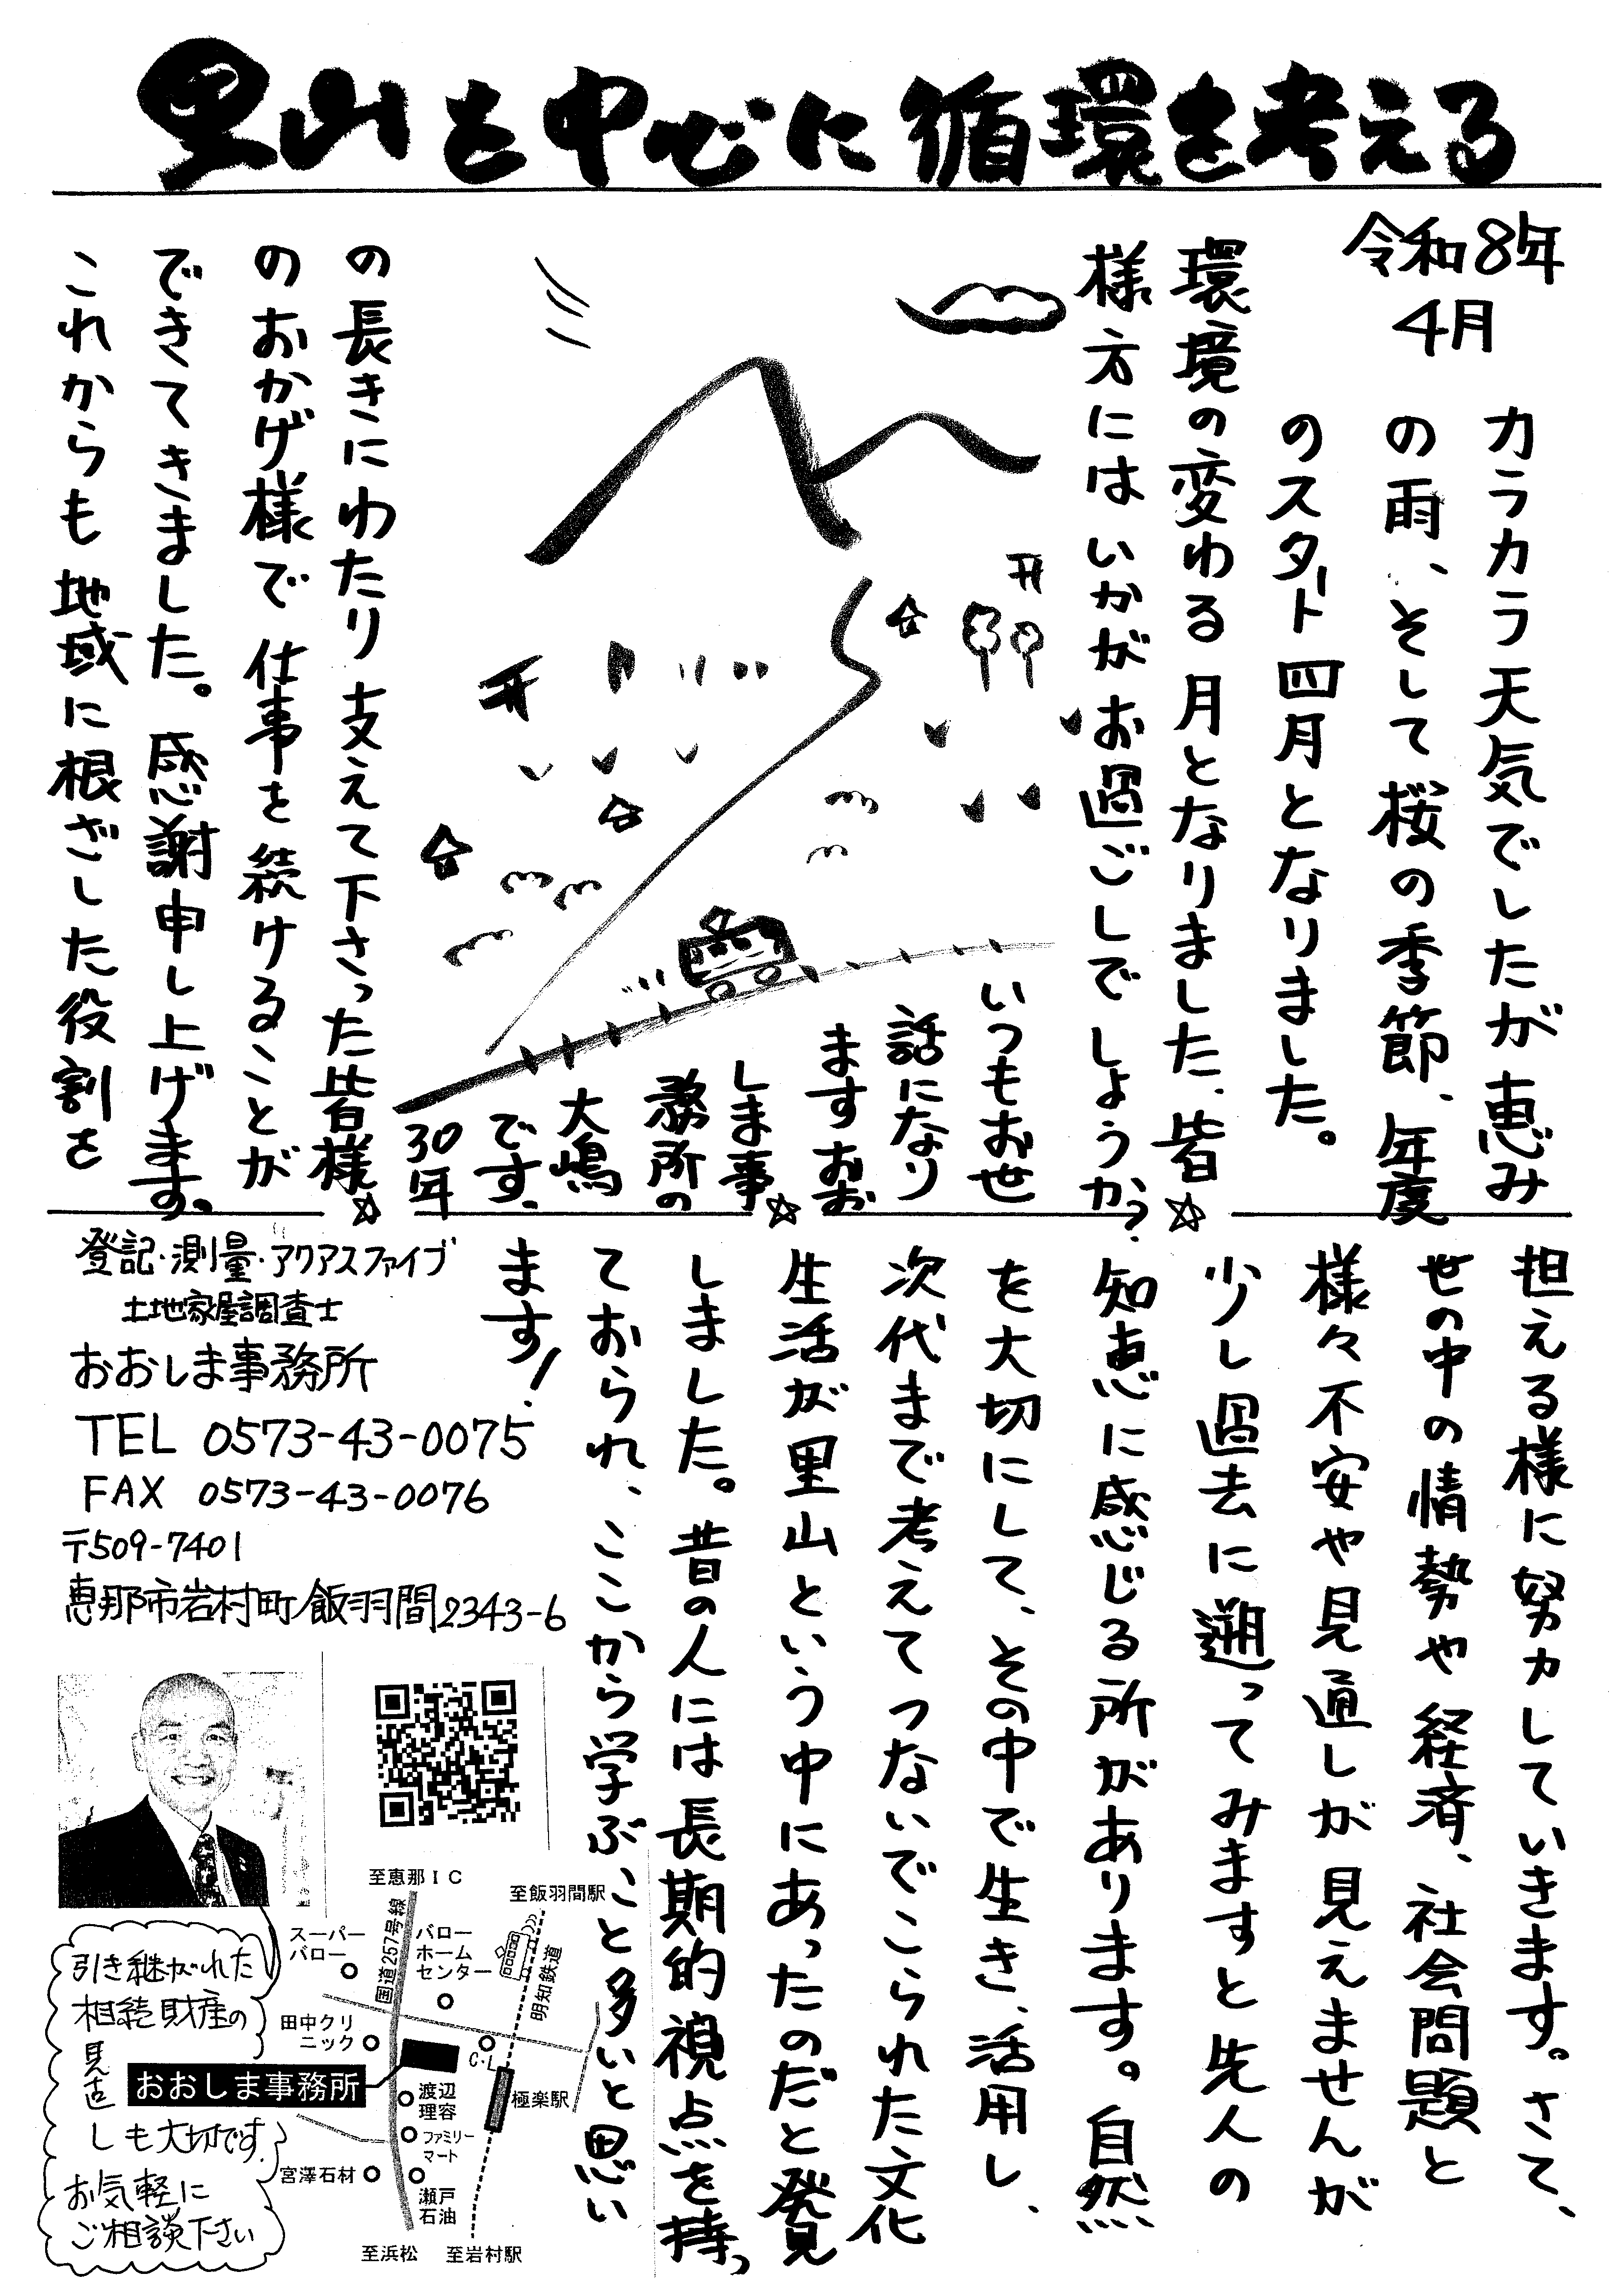 里山を中心に循環を考える
令和8年
4月
カラカラ天気でしたが恵み
の雨、そして桜の季節、年度
のスタート四月となりました。
環境の変わる月となりました、皆
様方にはいかがお過ごしでしょうか?
いつもお世
話になり
ますおお
しま事
務所の
大嶋
です、
30年
の長きにわたり支えて下さった皆様
のおかげ様で仕事を続けることが
できてきました。感謝申し上げます。
これからも地域に根ざした役割を
担える様に努力していきます。さて、
世の中の情勢や経済、社会問題と
様々不安や見通しが見えませんが
少し過去に遡ってみますと先人の
知恵に感じる所があります。自然
を大切にして、その中で生き、活用し、
次代まで考えてつないでこられた文化
生活が里山という中にあったのだと発見
しました。昔の人には長期的視点を持っ
ておられ、ここから学ぶこと多いと思い
ます!
登記・測量・アクアスファイブ
土地家屋調査士
おおしま事務所
TEL 0573-43-0075
FAX 0573-43-0076
〒509-7401
恵那市岩村町飯羽間2343-6
引き継がれた
相続財産の
見直
しも大切です
お気軽に
ご相談下さい
至恵那IC
至飯羽間駅
国道257号線
スーパー
バロー
バロー
ホーム
センター
明知鉄道
田中クリ
ニック
C・L
おおしま事務所
渡辺
理容
極楽駅
ファミリー
マート
宮澤石材
瀬戸
石油
至浜松
至岩村駅